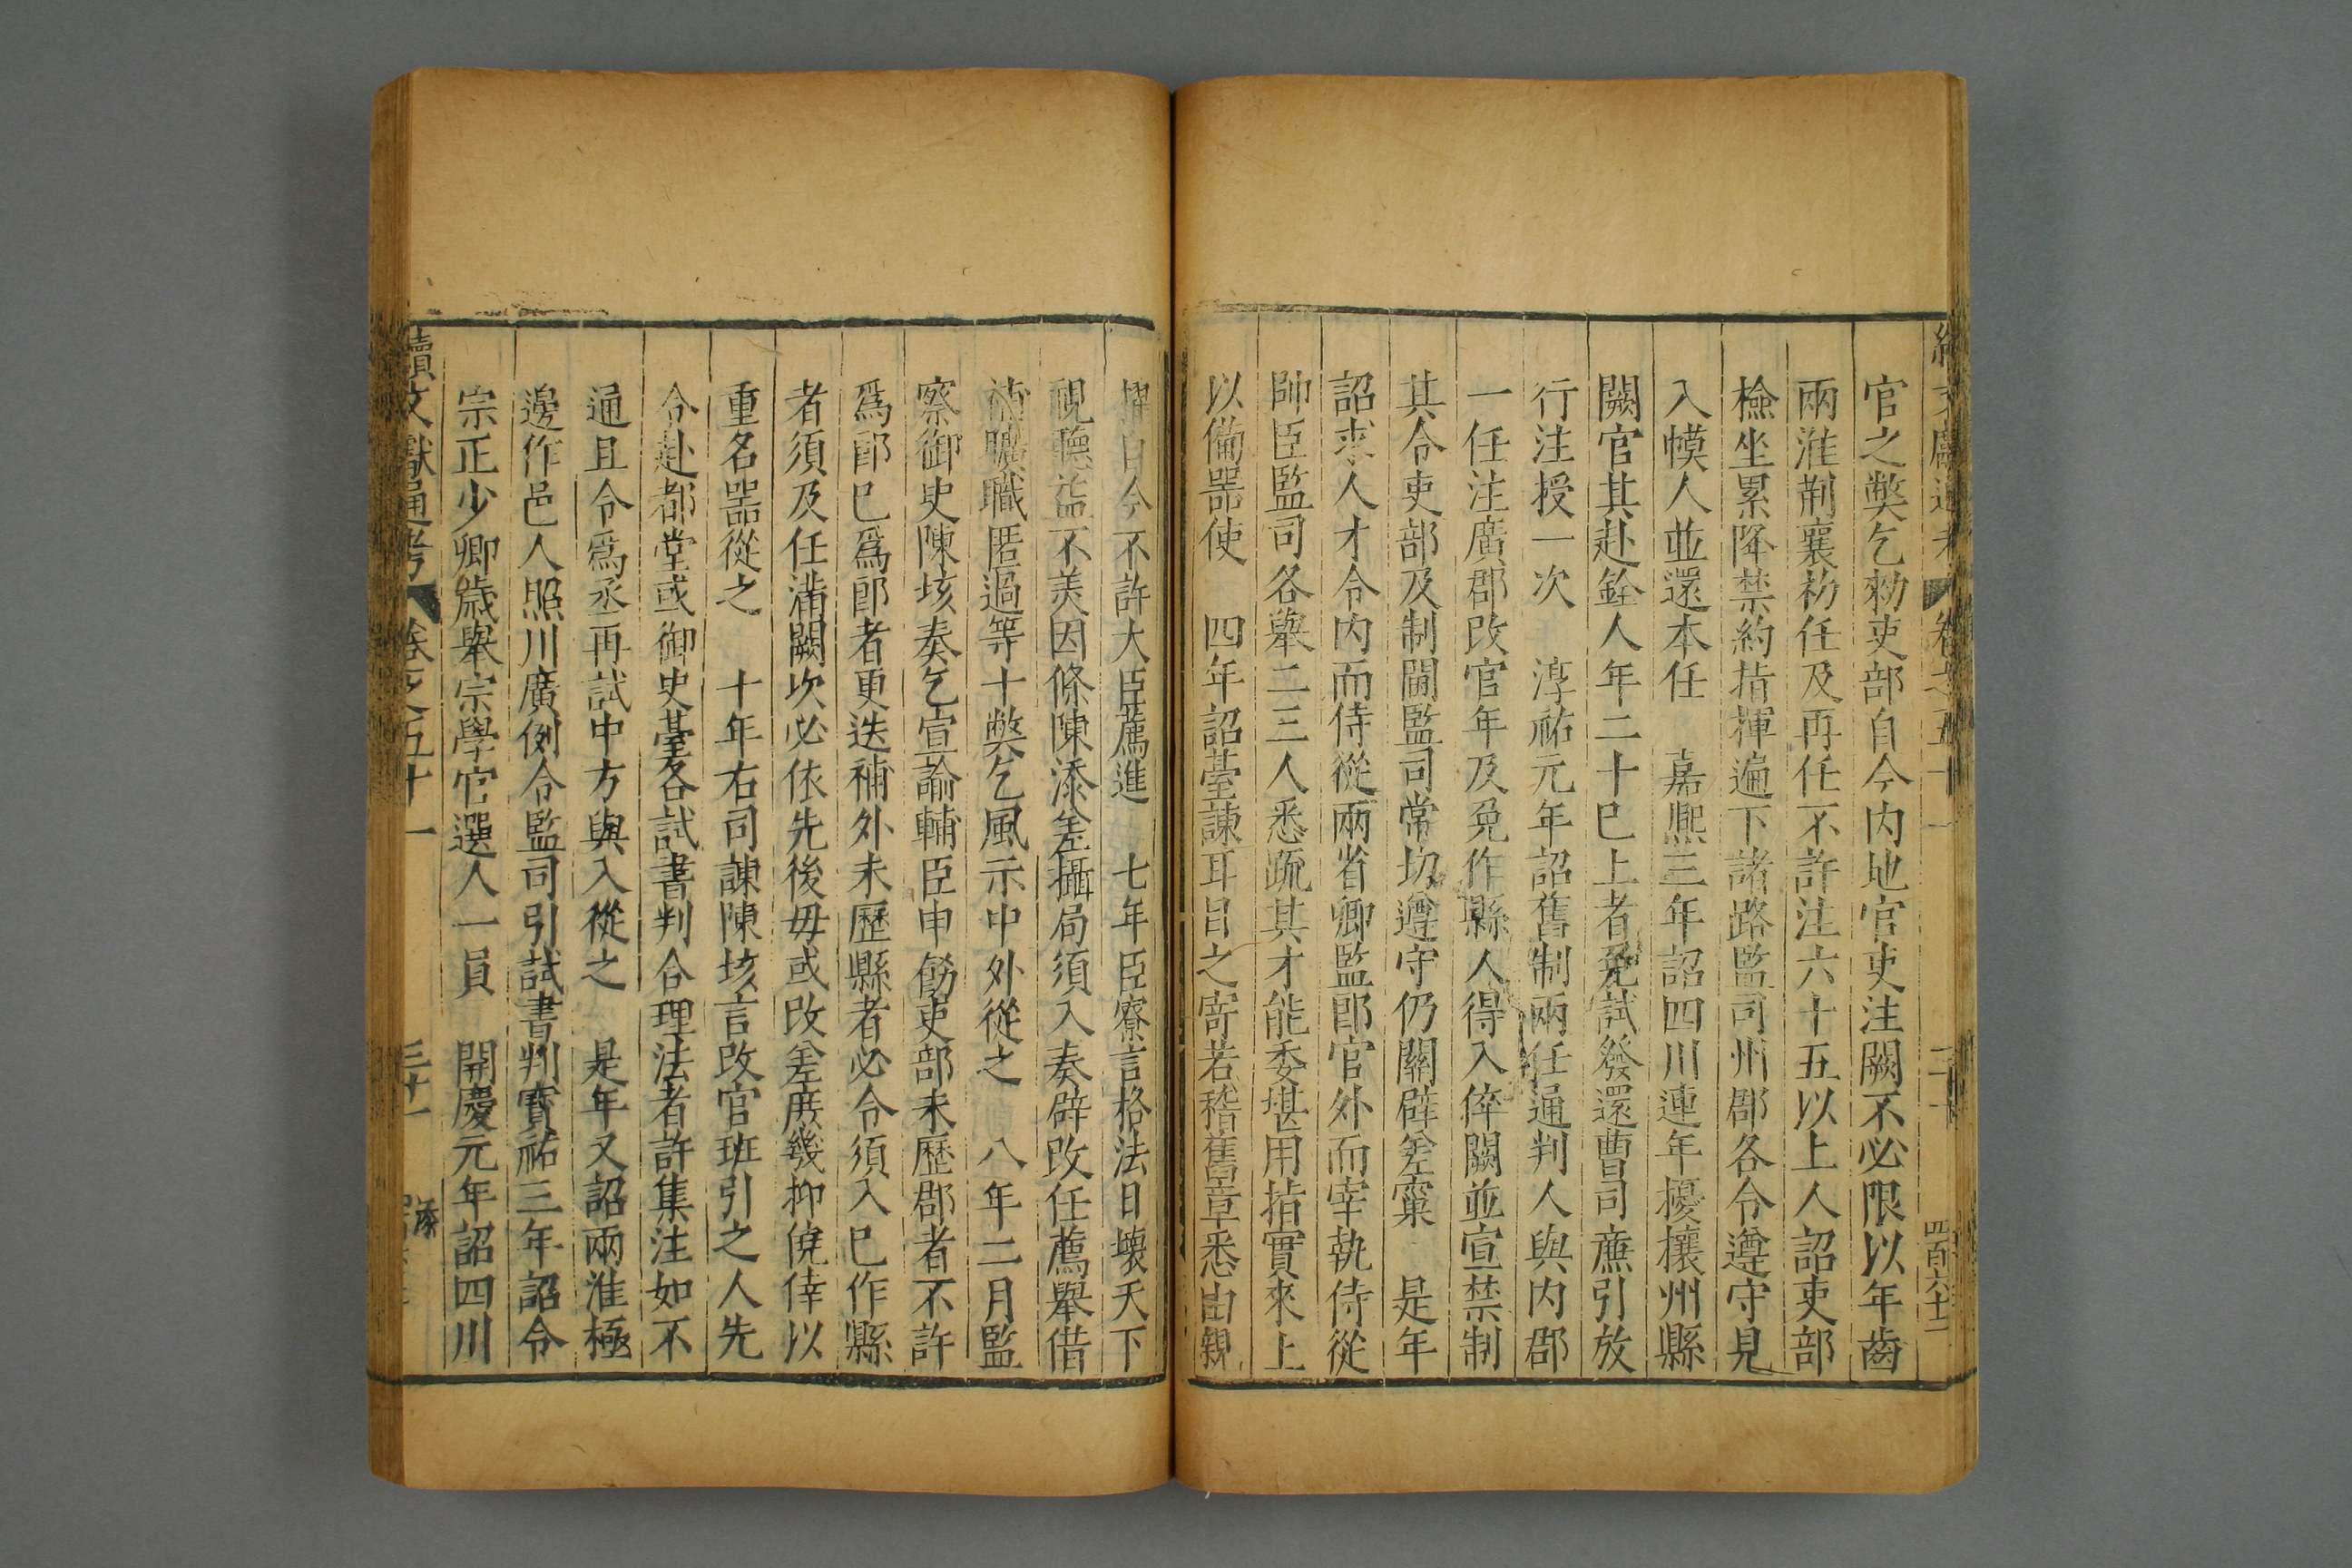 官之獘乞勑吏部自今内地官吏注闕不必限以年齒
兩淮荆襄初任及再任不許注六十五以上人詔吏部
檢坐累降禁約指揮遍下諸路監司州郡各令遵守見
入幙人並還本任　嘉熈三年詔四川連年擾攘州縣
闕官其赴銓人年二十已上者免試發還曹司廡引放
行注授一次　淳祐元年詔舊制兩任通判人與内郡
一任注廣郡改官年及免作縣人得入倅闕並宣禁制
其令吏部及制閫監司常切遵守仍關辟差窠　是年
詔求人才令内而侍從兩省卿監郎官外而宰執侍從
帥臣監司各舉二三人悉疏其才能委堪用指實來上
以備器使　四年詔臺諫耳目之寄若稽舊章悉由親
擢自今不許大臣薦進　七年臣寮言格法日壞天下
視聽益不美因條陳添差攝局須入奏辟改任薦舉借
曠職匿過等十獘乞風示中外從之　八年二月監
察御史陳垓奏乞宣諭輔臣申飭吏部未歷郡者不許
爲郎已爲郎者更迭補外未歷縣者必令須入已作縣
者須及任滿闕次必依先後毋或改差庶幾抑僥倖以
重名器從之　十年右司諫陳垓言改官班引之人先
令赴都堂或御史臺各試書判合理法者許集注如不
通且令爲丞再試中方與入從之　是年又詔兩淮極
邊作邑人照川廣例令監司引試書判寳祐三年詔令
宗正少卿歲舉宗學官選人一員　開慶元年詔四川
續文獻通考　卷之五十一　三十一